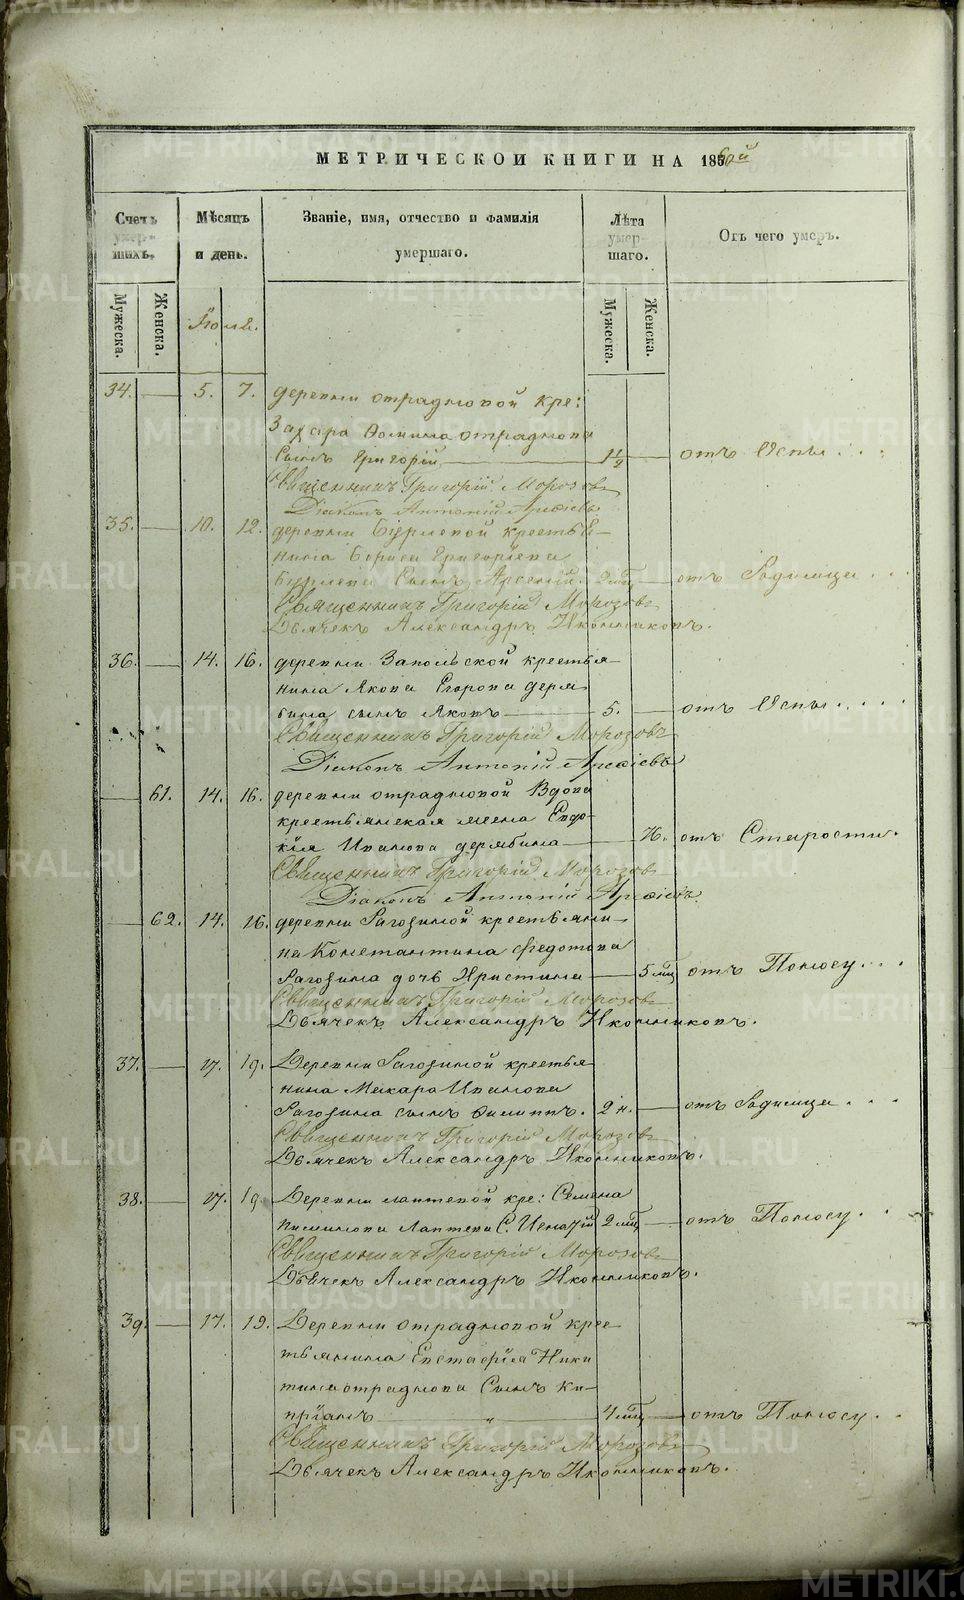 МЕТРИЧЕСКОЙ КНИГИ НА 1860й
Счетъ умер-шихъ.
Мѣсяцъ и день.
Званіе, имя, отчество и фамилія умершаго.
Лѣта умер-шаго.
Отъ чего умеръ.
Мужеска. Женска. Мужеска. Женска.
34. 5. 7. деревни отрадновой кре:
Захара Фомина отраднова
Сынъ Григорій 1½ отъ Оспы
Священникъ Григорій Морозовъ
Діаконъ Антоній
35. 10. 12. деревни Бурлевой крестья-
нина Бориса Григорьева
Бурлева Сынъ Арсеній 2 мц отъ Родимца
Священникъ Григорій Морозовъ
Дьячекъ Александръ Иконниковъ.
36. 14. 16. деревни Запольской крестья-
нина Якова Егорова деря-
бина сынъ Яковъ 5. отъ Оспы
Священникъ Григорій Морозовъ
Діаконъ Антоній
61. 14. 16. деревни отрадновой Вдова
крестьянская жена Евдо-
кія Иванова дерябина 76. отъ Старости.
Священникъ Григорій Морозовъ
Діаконъ Антоній
62. 14. 16. деревни Рагозиной крестьяни-
на Константина Федотова
Рагозина дочь Христина 5 мц отъ Поносу
Священникъ Григорій Морозовъ
Дьячекъ Александръ Иконниковъ.
37. 17. 19. Деревни Рагозиной крестья-
нина Макара Иванова
Рагозина сынъ Филиппъ. 2 н. отъ Родимца
Священникъ Григорій Морозовъ
Дьячекъ Александръ Иконниковъ.
38. 17. 19 Деревни лаптевой кре: Семена
Пименова Лаптева С. Игнатій 2 мц отъ Поносу
Священникъ Григорій Морозовъ
Дьячекъ Александръ Иконниковъ.
39. 17. 19. Деревни отрадновой крес-
тьянина Евстафія Ники-
тина отраднова Сынъ Ки-
пріанъ 4 мц отъ Поносу
Священникъ Григорій Морозовъ
Дьячекъ Александръ Иконниковъ.
METRIKI.GASO-URAL.RU